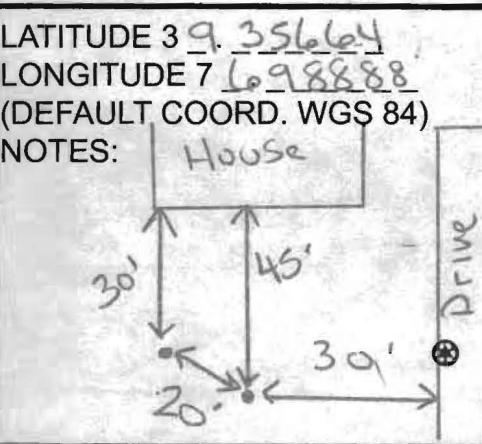 LATITUDE 39.35664
LONGITUDE 7698888
(DEFAULT COORD. WGS 84)
NOTES:
House
30'
45'
Drive
39'
20'